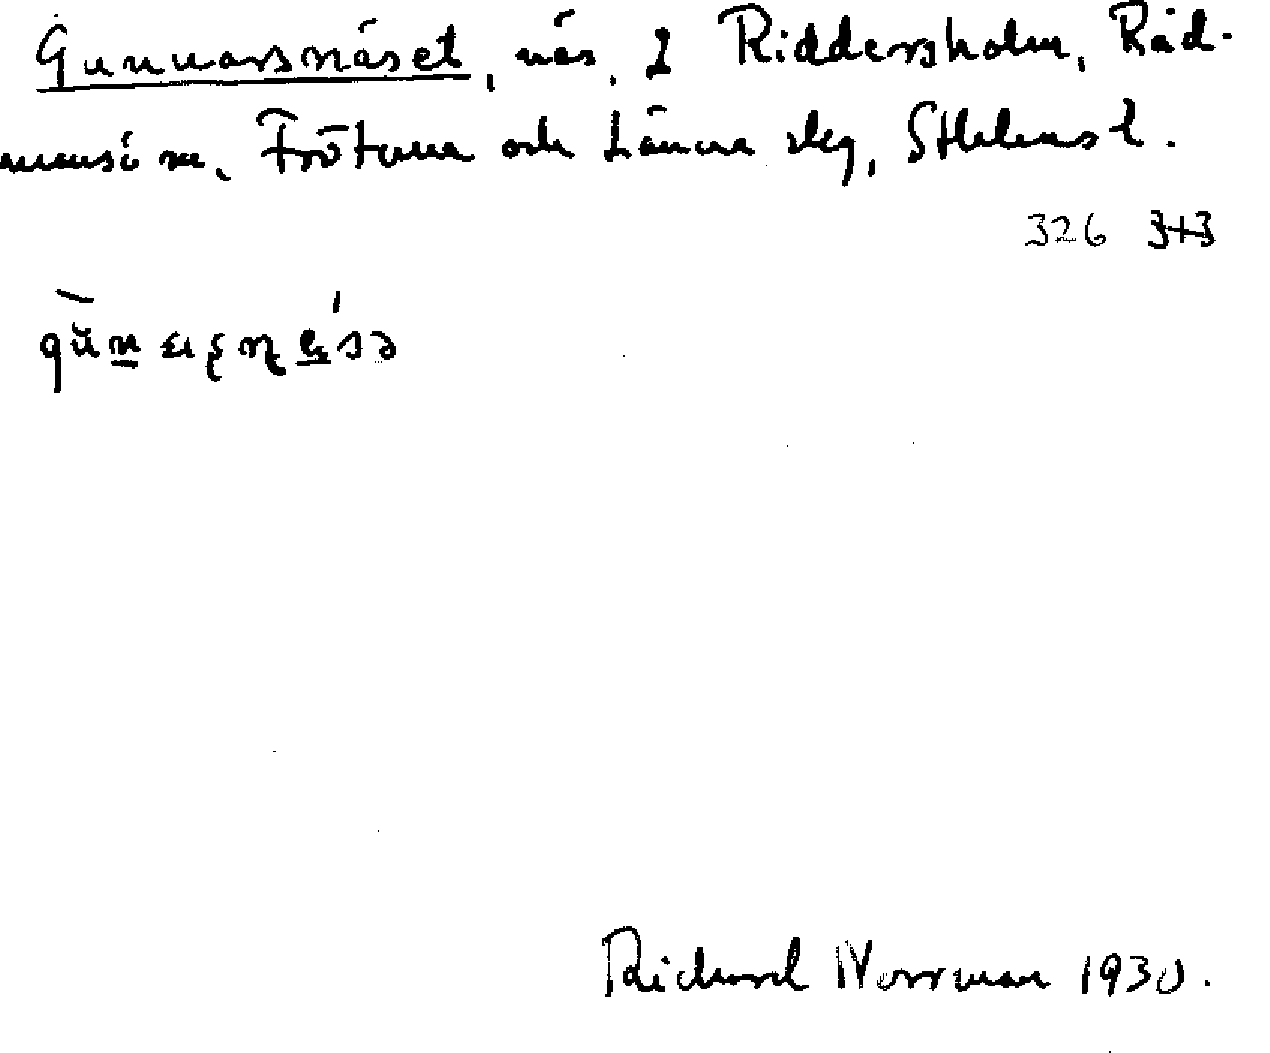 Gunnarsnäset, näs, 2 Riddersholm, Råd-
mansö sn, Frötuna och Länna slg, Sthlms l.
326 3+3
Richard Norrman 1930.